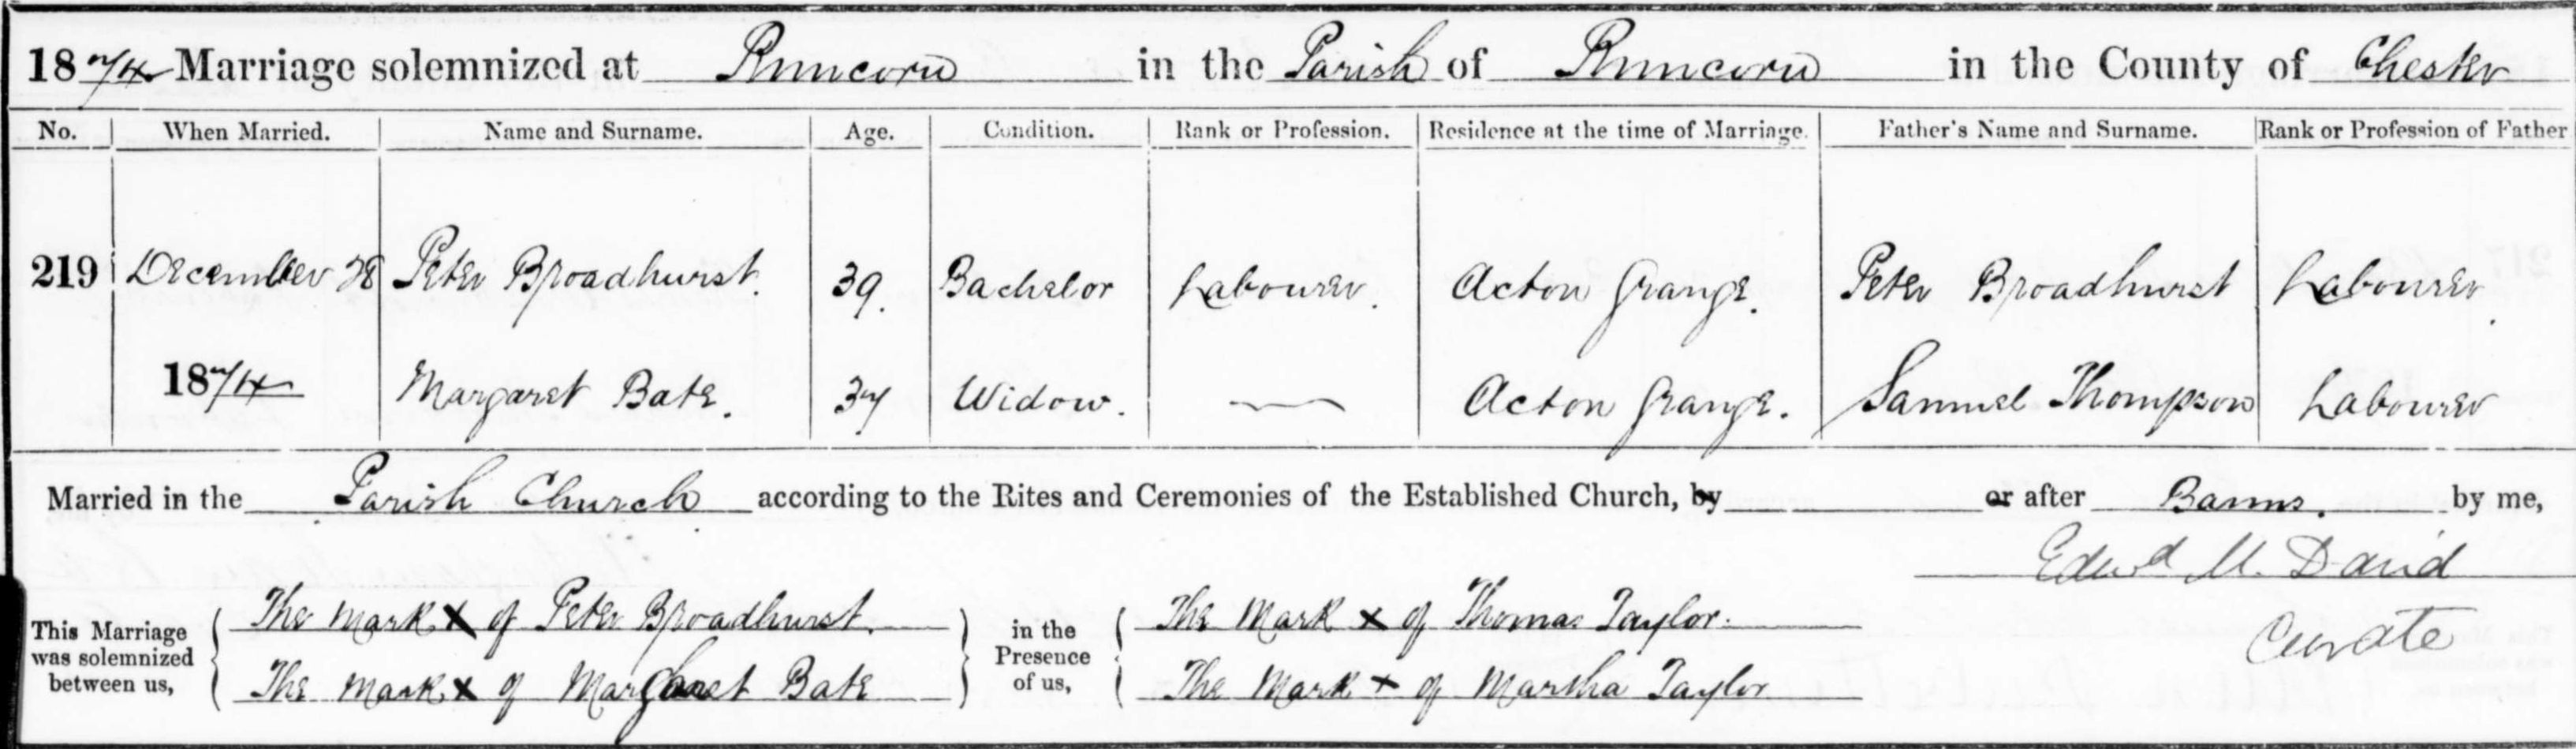 1874 Marriage solemnized at Runcorn in the Parish of Runcorn in the County of Chester
No. When Married. Name and Surname. Age. Condition. Rank or Profession. Residence at the time of Marriage. Father's Name and Surname. Rank or Profession of Father
219 December 28 Peter Broadhurst. 39. Bachelor Labourer. Acton Grange. Peter Broadhurst Labourer.
1874 Margaret Bate. 37 Widow. Acton Grange. Samuel Thompson Labourer
Married in the Parish Church according to the Rites and Ceremonies of the Established Church, by or after Banns. by me,
Edwd M. David
Curate
This Marriage was solemnized between us,
The mark X of Peter Broadhurst.
The mark X of Margaret Bate
in the Presence of us,
The Mark X of Thomas Taylor.
The Mark X of Martha Taylor